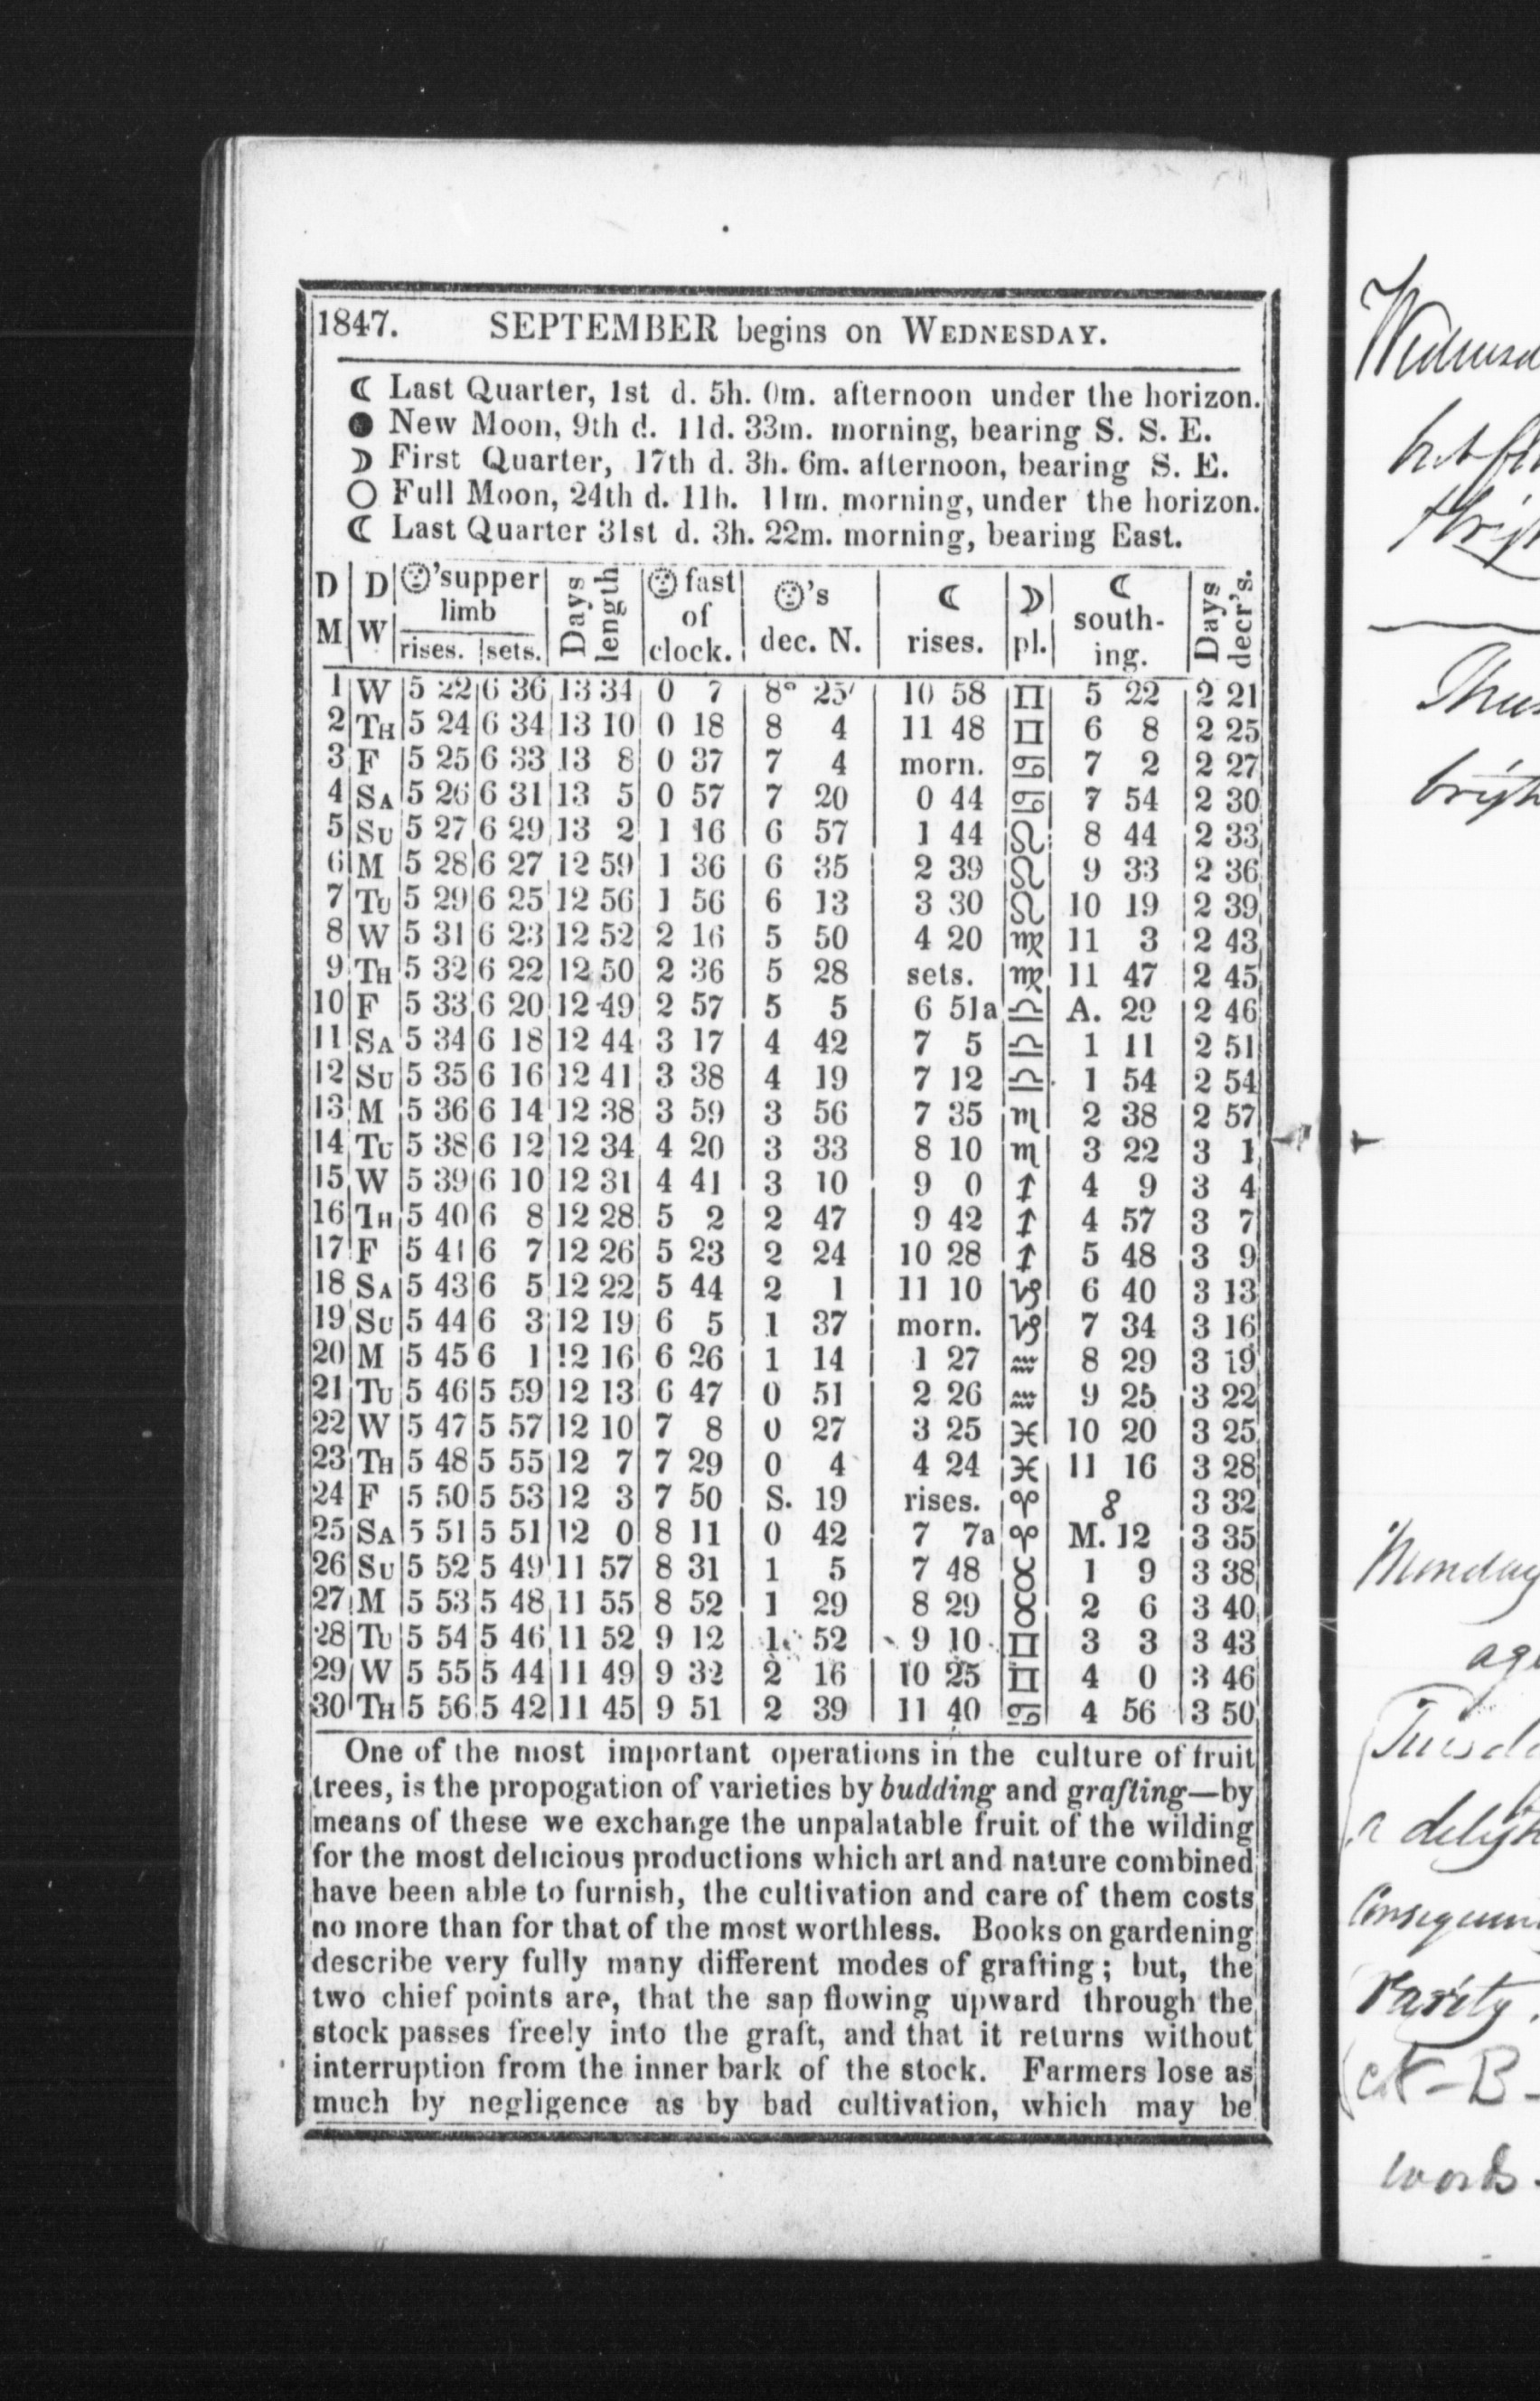 1847. SEPTEMBER begins on WEDNESDAY.
☾ Last Quarter, 1st d. 5h. 0m. afternoon under the horizon.
● New Moon, 9th d. 11d. 33m. morning, bearing S. S. E.
☽ First Quarter, 17th d. 3h. 6m. afternoon, bearing S. E.
○ Full Moon, 24th d. 11h. 11m. morning, under the horizon.
☾ Last Quarter 31st d. 3h. 22m. morning, bearing East.
D M | D W | ☉'s upper limb rises. | sets. | Days length | ☉ fast of clock. | ☉'s dec. N. | ☾ rises. | ☽ pl. | ☾ south-ing. | Days decr's.
1 W 5 22 6 36 13 34 0 7 8° 25′ 10 58 ♊ 5 22 2 21
2 TH 5 24 6 34 13 10 0 18 8 4 11 48 ♊ 6 8 2 25
3 F 5 25 6 33 13 8 0 37 7 4 morn. ♋ 7 2 2 27
4 SA 5 26 6 31 13 5 0 57 7 20 0 44 ♋ 7 54 2 30
5 SU 5 27 6 29 13 2 1 16 6 57 1 44 ♌ 8 44 2 33
6 M 5 28 6 27 12 59 1 36 6 35 2 39 ♌ 9 33 2 36
7 TU 5 29 6 25 12 56 1 56 6 13 3 30 ♌ 10 19 2 39
8 W 5 31 6 23 12 52 2 16 5 50 4 20 ♍ 11 3 2 43
9 TH 5 32 6 22 12 50 2 36 5 28 sets. ♍ 11 47 2 45
10 F 5 33 6 20 12 49 2 57 5 5 6 51a ♎ A. 29 2 46
11 SA 5 34 6 18 12 44 3 17 4 42 7 5 ♎ 1 11 2 51
12 SU 5 35 6 16 12 41 3 38 4 19 7 12 ♎ 1 54 2 54
13 M 5 36 6 14 12 38 3 59 3 56 7 35 ♏ 2 38 2 57
14 TU 5 38 6 12 12 34 4 20 3 33 8 10 ♏ 3 22 3 1
15 W 5 39 6 10 12 31 4 41 3 10 9 0 ♐ 4 9 3 4
16 TH 5 40 6 8 12 28 5 2 2 47 9 42 ♐ 4 57 3 7
17 F 5 41 6 7 12 26 5 23 2 24 10 28 ♐ 5 48 3 9
18 SA 5 43 6 5 12 22 5 44 2 1 11 10 ♑ 6 40 3 13
19 SU 5 44 6 3 12 19 6 5 1 37 morn. ♑ 7 34 3 16
20 M 5 45 6 1 12 16 6 26 1 14 1 27 ♒ 8 29 3 19
21 TU 5 46 5 59 12 13 6 47 0 51 2 26 ♒ 9 25 3 22
22 W 5 47 5 57 12 10 7 8 0 27 3 25 ♓ 10 20 3 25
23 TH 5 48 5 55 12 7 7 29 0 4 4 24 ♓ 11 16 3 28
24 F 5 50 5 53 12 3 7 50 S. 19 rises. ♈ ☍ 3 32
25 SA 5 51 5 51 12 0 8 11 0 42 7 7a ♈ M. 12 3 35
26 SU 5 52 5 49 11 57 8 31 1 5 7 48 ♉ 1 9 3 38
27 M 5 53 5 48 11 55 8 52 1 29 8 29 ♉ 2 6 3 40
28 TU 5 54 5 46 11 52 9 12 1 52 9 10 ♊ 3 3 3 43
29 W 5 55 5 44 11 49 9 32 2 16 10 25 ♊ 4 0 3 46
30 TH 5 56 5 42 11 45 9 51 2 39 11 40 ♋ 4 56 3 50
One of the most important operations in the culture of fruit
trees, is the propogation of varieties by budding and grafting—by
means of these we exchange the unpalatable fruit of the wilding
for the most delicious productions which art and nature combined
have been able to furnish, the cultivation and care of them costs
no more than for that of the most worthless. Books on gardening
describe very fully many different modes of grafting; but, the
two chief points are, that the sap flowing upward through the
stock passes freely into the graft, and that it returns without
interruption from the inner bark of the stock. Farmers lose as
much by negligence as by bad cultivation, which may be
Monday
rarity.
words